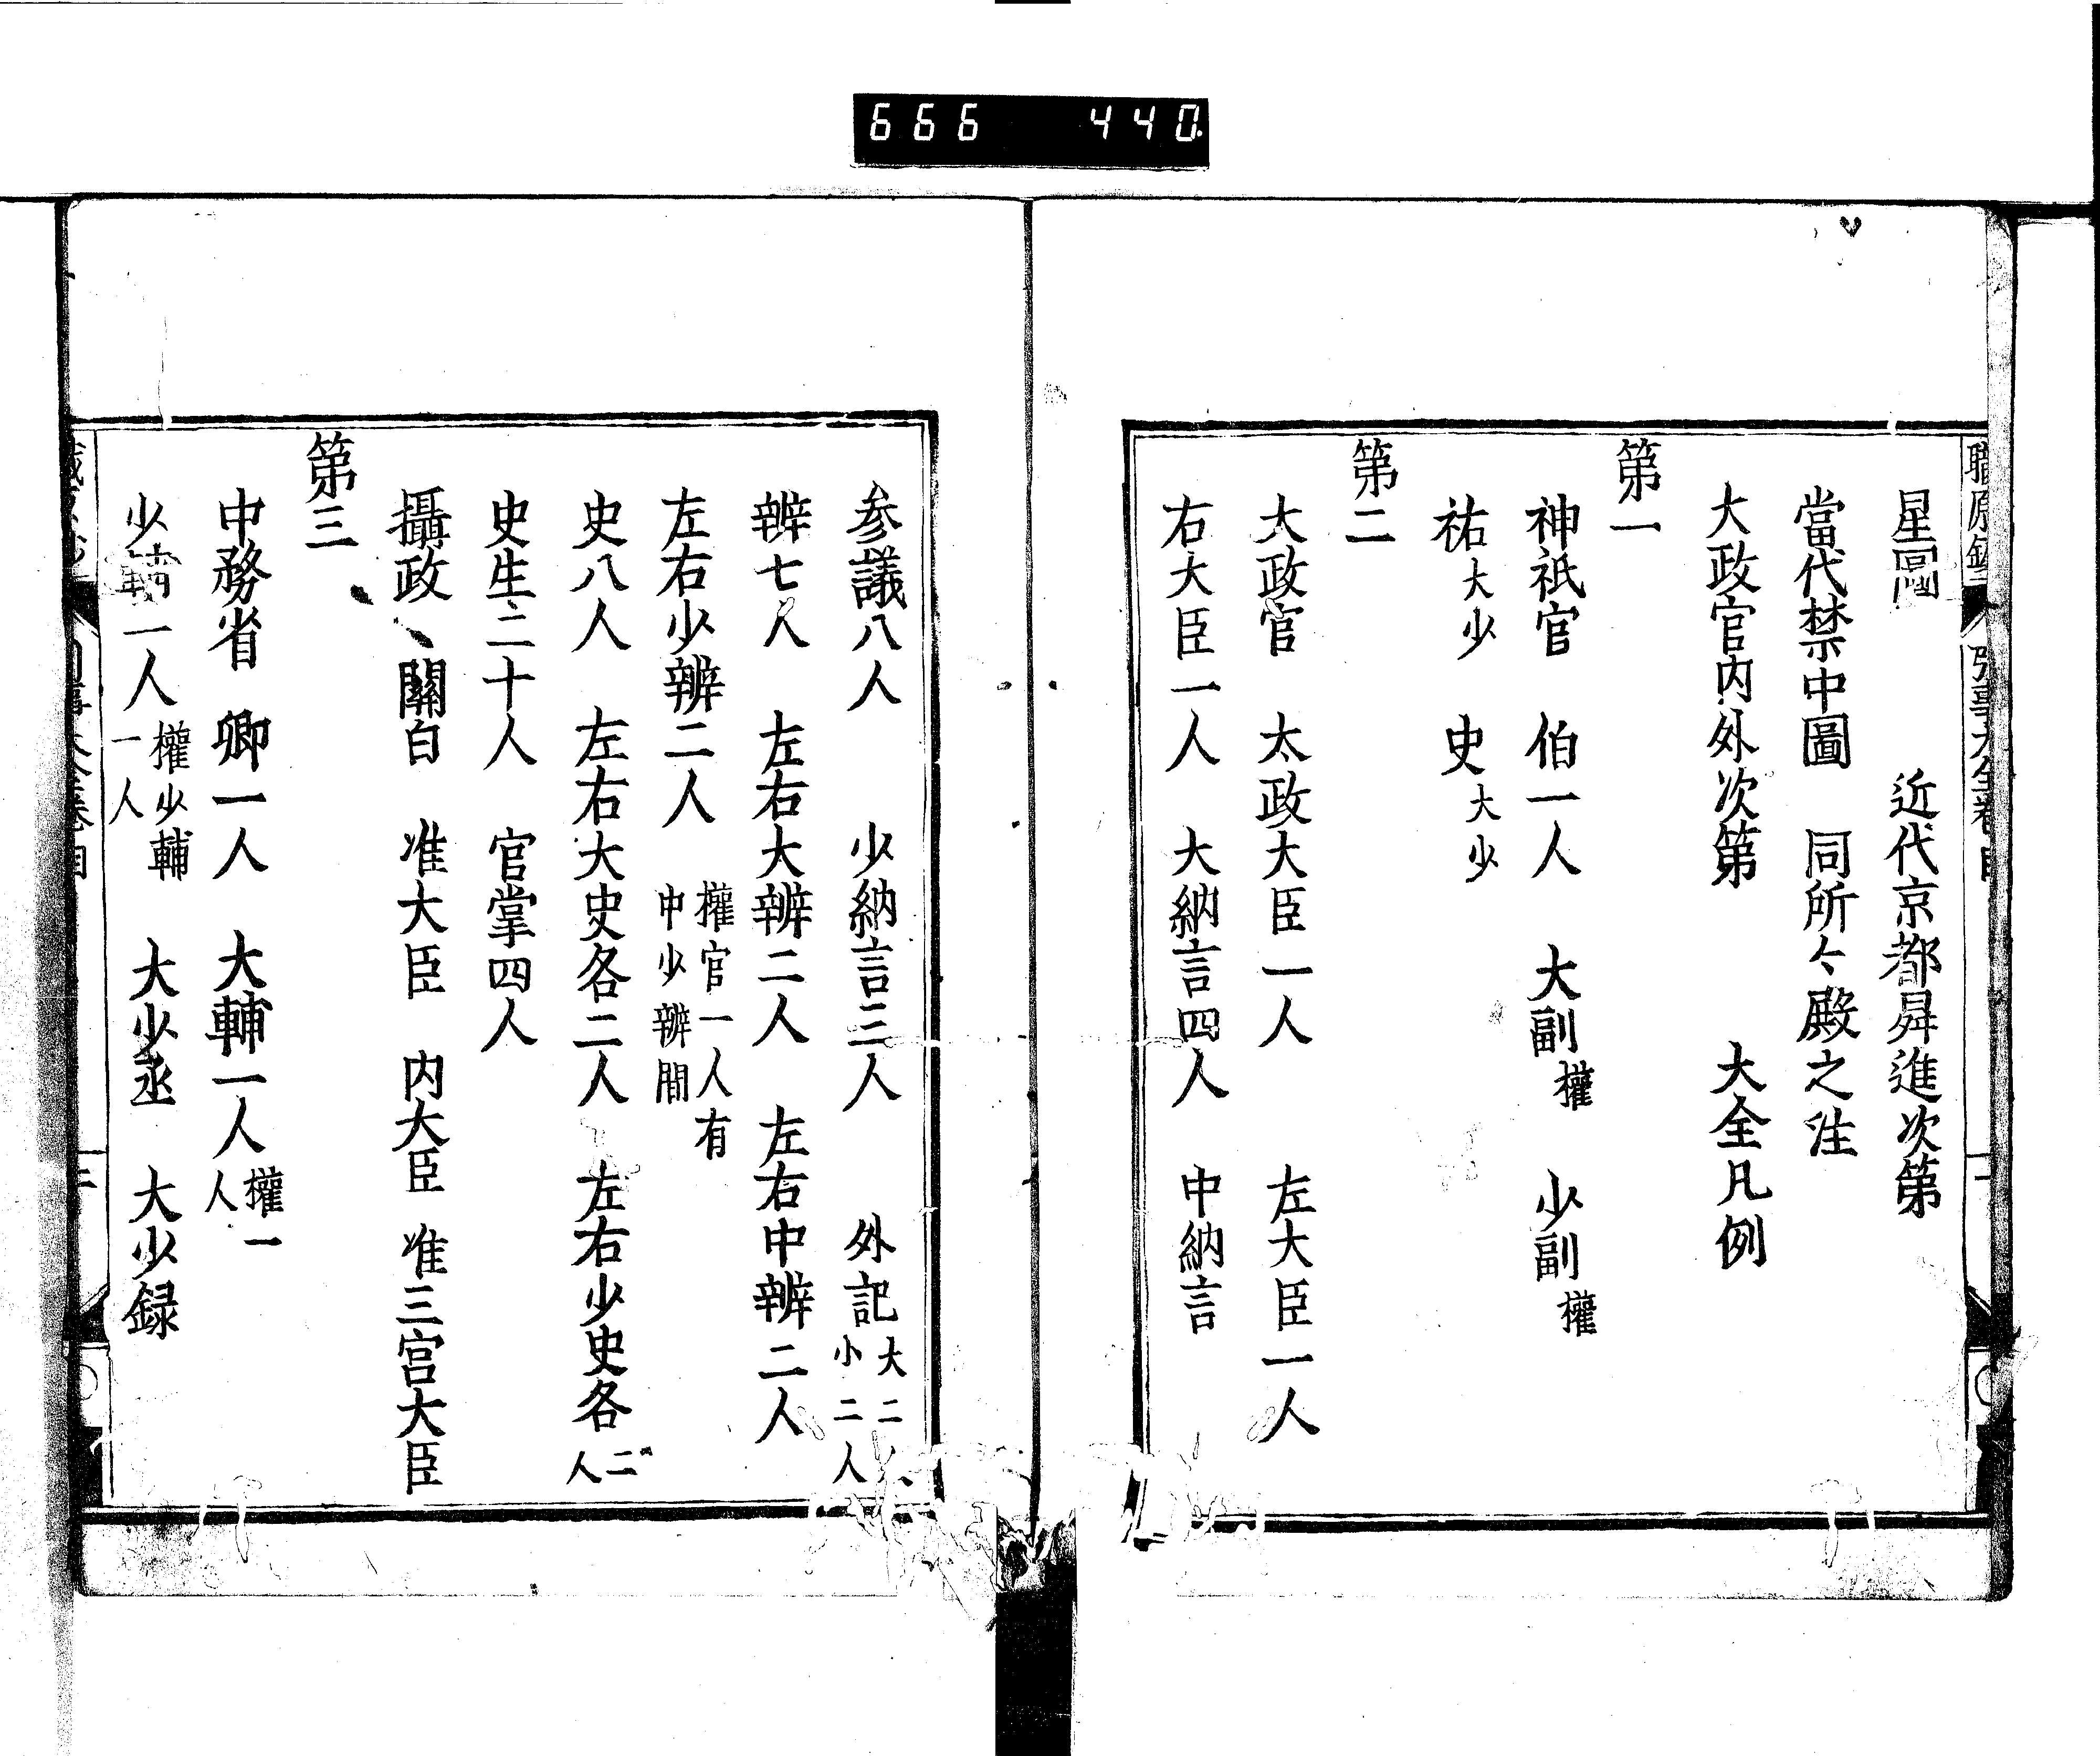 666 440
星圖 近代京都昇進次第
當代禁中圖 同所々殿之注
大政官内外次第 大全凡例
第一
神祇官 伯一人 大副權 少副權
祐大少 史大少
第二
大政官 太政大臣一人 左大臣一人
右大臣一人 大納言四人 中納言
参議八人 少納言三人 外記大二人小二人
辨七人 左右大辨二人 左右中辨二人
左右少辨二人 權官一人有中少辨間
史八人 左右大史各二人 左右少史各二人
史生二十人 官掌四人
攝政、關白 准大臣 内大臣 准三宫大臣
第三
中務省 卿一人 大輔一人權一人
少輔一人權少輔一人 大少丞 大少録